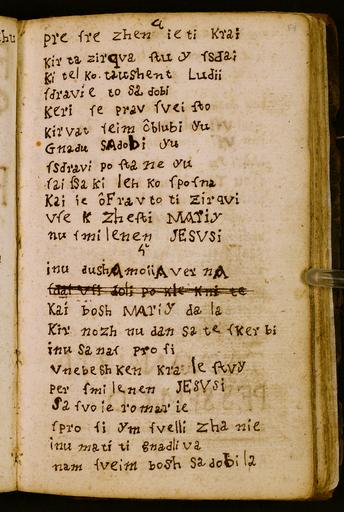 a
pre ſre zhen ie ti krai
kir ta zirqva ſtu y ſsdai
ki tel ko. taushent Ludii
ſdravie to sa dobi
keri ſe prav ſvei ſto
kirvat ſeim ôblubi yu
Gnadu SAdobi yu
ſsdravi po ſta ne yu
ſai ſſa ki leh ko ſpoſna
Kai ie ôFrav to ti zirqvi
vſe k zheſti MARiy
nu ſmilenen JESVSi
5
inu dushA moiiA ver nA
ſdai vſi doli po kle kni te
Kai bosh MARiy da la
Kir nozh nu dan sa te ſker bi
inu sa naſ pro ſi
vnebesh ken kra le ſtvy
per ſmilenen JESVSi
Sa ſvoie romarie
ſpro ſi ym ſvelli zha nie
inu mati ti gnadliva
nam ſveim bosh sa dobila